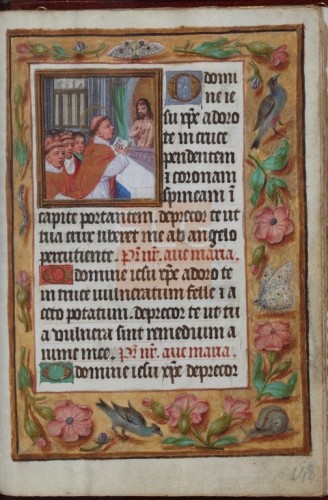 O domi
ne ie
su xp̄e adoro
te in cruce
pendentem
⁊ coronam
spineam ī
capite portantem. deprecor te ut
tua crux liberet me ab angelo
percutiente. Pr̄ nr̄. aue maria.
O domine iesu xp̄e adoro te
in cruce uulneratum felle ⁊ a
ceto potatum. deprecor te ut tu
a vulnera sint remedium a
nime mee. Pr̄ nr̄. aue maria.
O domine iesu xp̄e deprecor